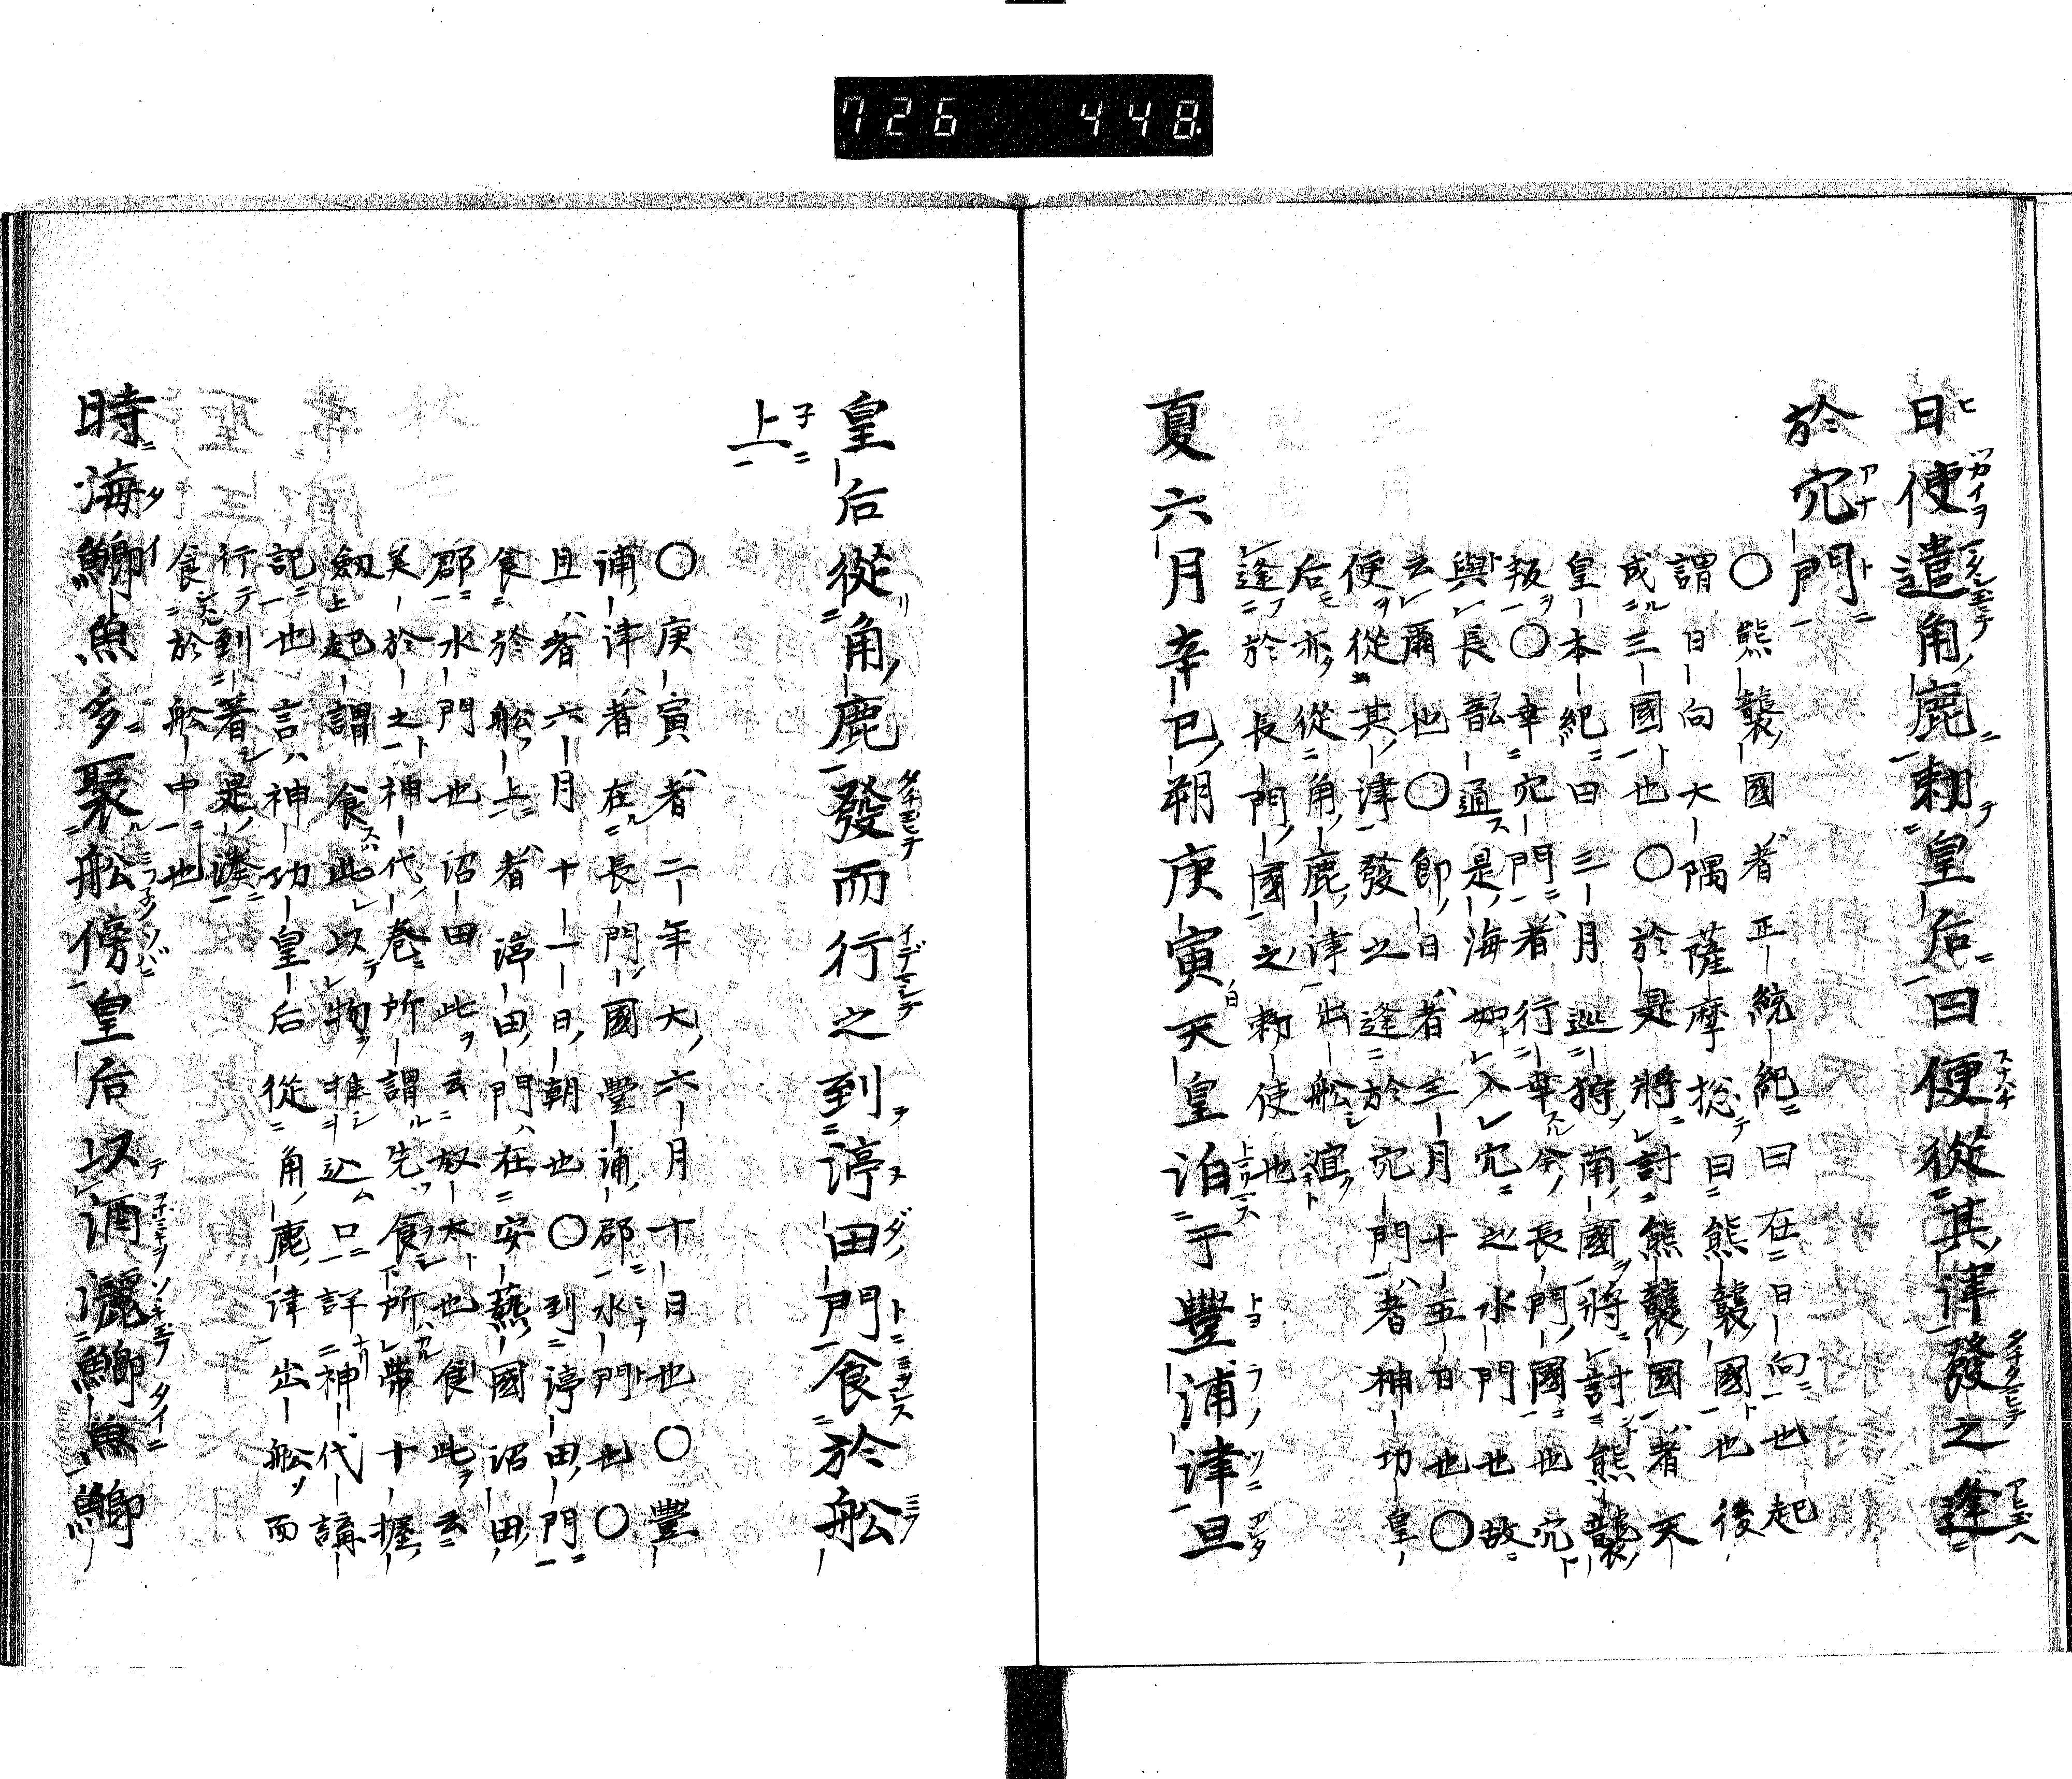 726 448
日使遣角鹿勅皇后曰便從其津發之逢
於穴門
〇熊襲國者正統紀曰在日向也起
謂日向大隅薩摩捴曰熊襲國也後
成三國也〇於是將討熊襲國者天
皇本紀曰三月巡狩南國將討熊襲
叛〇幸穴門者行幸今長門國也穴
與長韶通是海如入穴之水門也故
云爾也〇即日者三月十五日也〇
便從其津發之逢於穴門者神功皇
后亦從角鹿津出舩
逢於長門國之勅使也
夏六月辛巳朔庚寅天皇泊于豐浦津且
皇后從角鹿發而行之到渟田門食於舩
上
〇庚寅者二年大六月十日也〇豐
浦津者在長門國豐浦郡水門也〇
且者六月十一日朝也〇到渟田門
食於舩上者渟田門在安藝國沼田
郡水門也沼田此云奴太也食此云
美於之神代卷所謂先食所帶十握
劔起謂食此以物推込口詳神代講
記也言神功皇后從角鹿津出舩而
行到著是湊
食於舩中也
時海鯽魚多聚舩傍皇后以酒灑鯽魚鯽